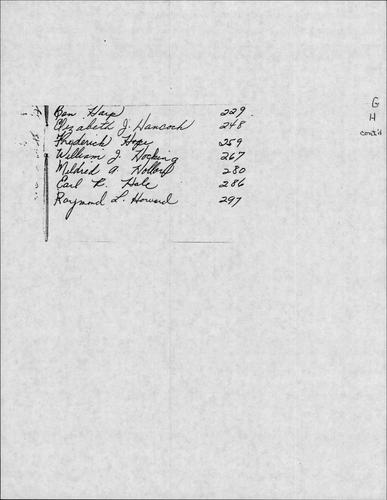 Ben Harp 229
G
Elizabeth J. Hancock 248
H
Frederick Hope 259
cont'd
William J. Hocking 267
Mildred A. 280
Earl R. Hale 286
Raymond L. Howard 297